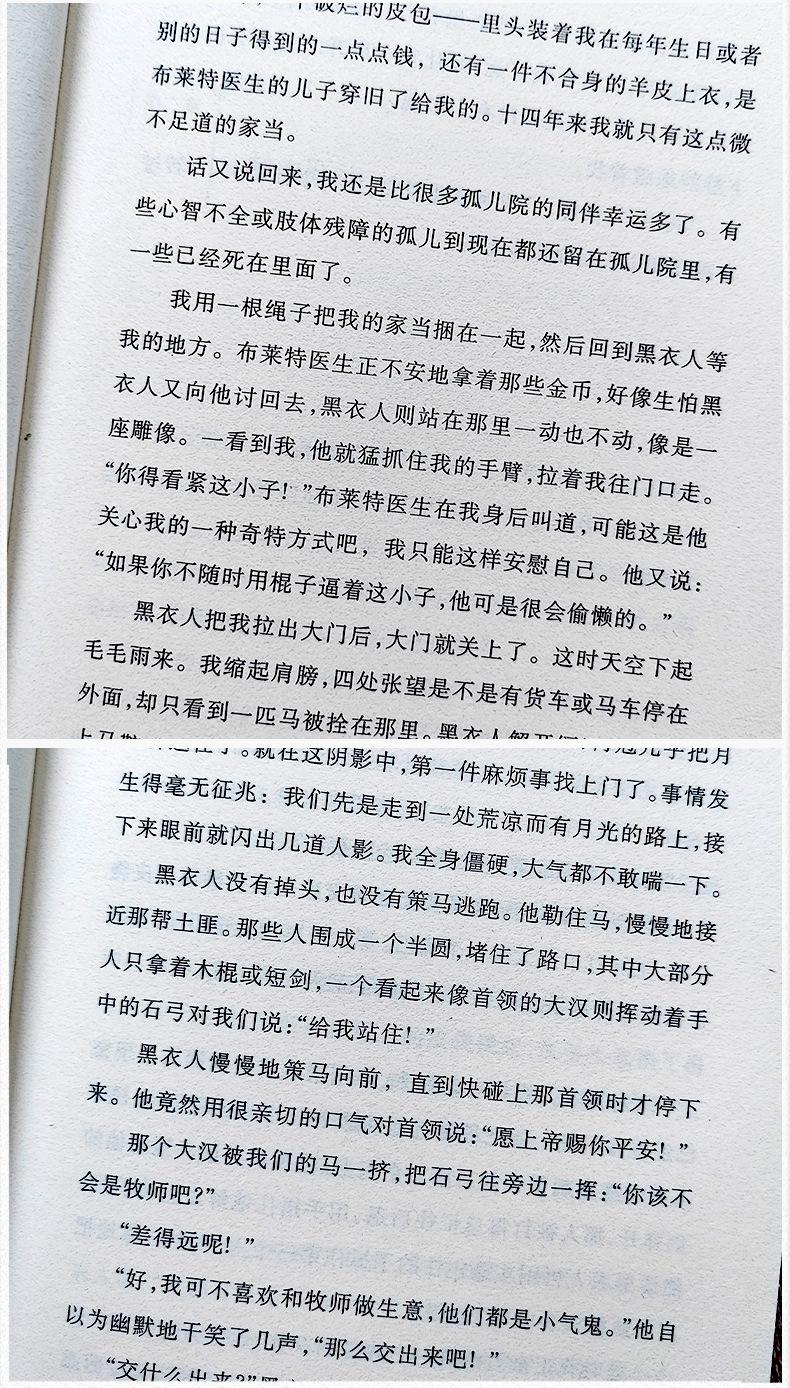 破烂的皮包——里头装着我在每年生日或者
别的日子得到的一点点钱，还有一件不合身的羊皮上衣，是
布莱特医生的儿子穿旧了给我的。十四年来我就只有这点微
不足道的家当。
话又说回来，我还是比很多孤儿院的同伴幸运多了。有
些心智不全或肢体残障的孤儿到现在都还留在孤儿院里，有
一些已经死在里面了。
我用一根绳子把我的家当捆在一起，然后回到黑衣人等
我的地方。布莱特医生正不安地拿着那些金币，好像生怕黑
衣人又向他讨回去，黑衣人则站在那里一动也不动，像是一
座雕像。一看到我，他就猛抓住我的手臂，拉着我往门口走。
“你得看紧这小子！”布莱特医生在我身后叫道，可能这是他
关心我的一种奇特方式吧，我只能这样安慰自己。他又说：
“如果你不随时用棍子逼着这小子，他可是很会偷懒的。”
黑衣人把我拉出大门后，大门就关上了。这时天空下起
毛毛雨来。我缩起肩膀，四处张望是不是有货车或马车停在
外面，却只看到一匹马被拴在那里。黑衣人解开
就在这阴影中，第一件麻烦事找上门了。事情发
生得毫无征兆：我们先是走到一处荒凉而有月光的路上，接
下来眼前就闪出几道人影。我全身僵硬，大气都不敢喘一下。
黑衣人没有掉头，也没有策马逃跑。他勒住马，慢慢地接
近那帮土匪。那些人围成一个半圆，堵住了路口，其中大部分
人只拿着木棍或短剑，一个看起来像首领的大汉则挥动着手
中的石弓对我们说：“给我站住！”
黑衣人慢慢地策马向前，直到快碰上那首领时才停下
来。他竟然用很亲切的口气对首领说：“愿上帝赐你平安！”
那个大汉被我们的马一挤，把石弓往旁边一挥：“你该不
会是牧师吧？”
“差得远呢！”
“好，我可不喜欢和牧师做生意，他们都是小气鬼。”他自
以为幽默地干笑了几声，“那么交出来吧！”
“交什么出来？”